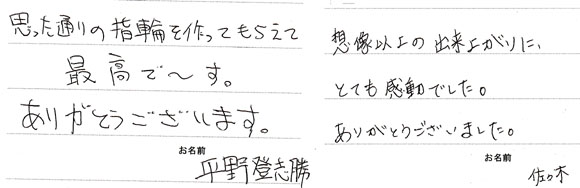 思った通りの指輪を作ってもらえて
最高で〜す。
ありがとうございます。
お名前
平野登志勝
想像以上の出来上がりに、
とても感動でした。
ありがとうございました。
お名前
佐々木